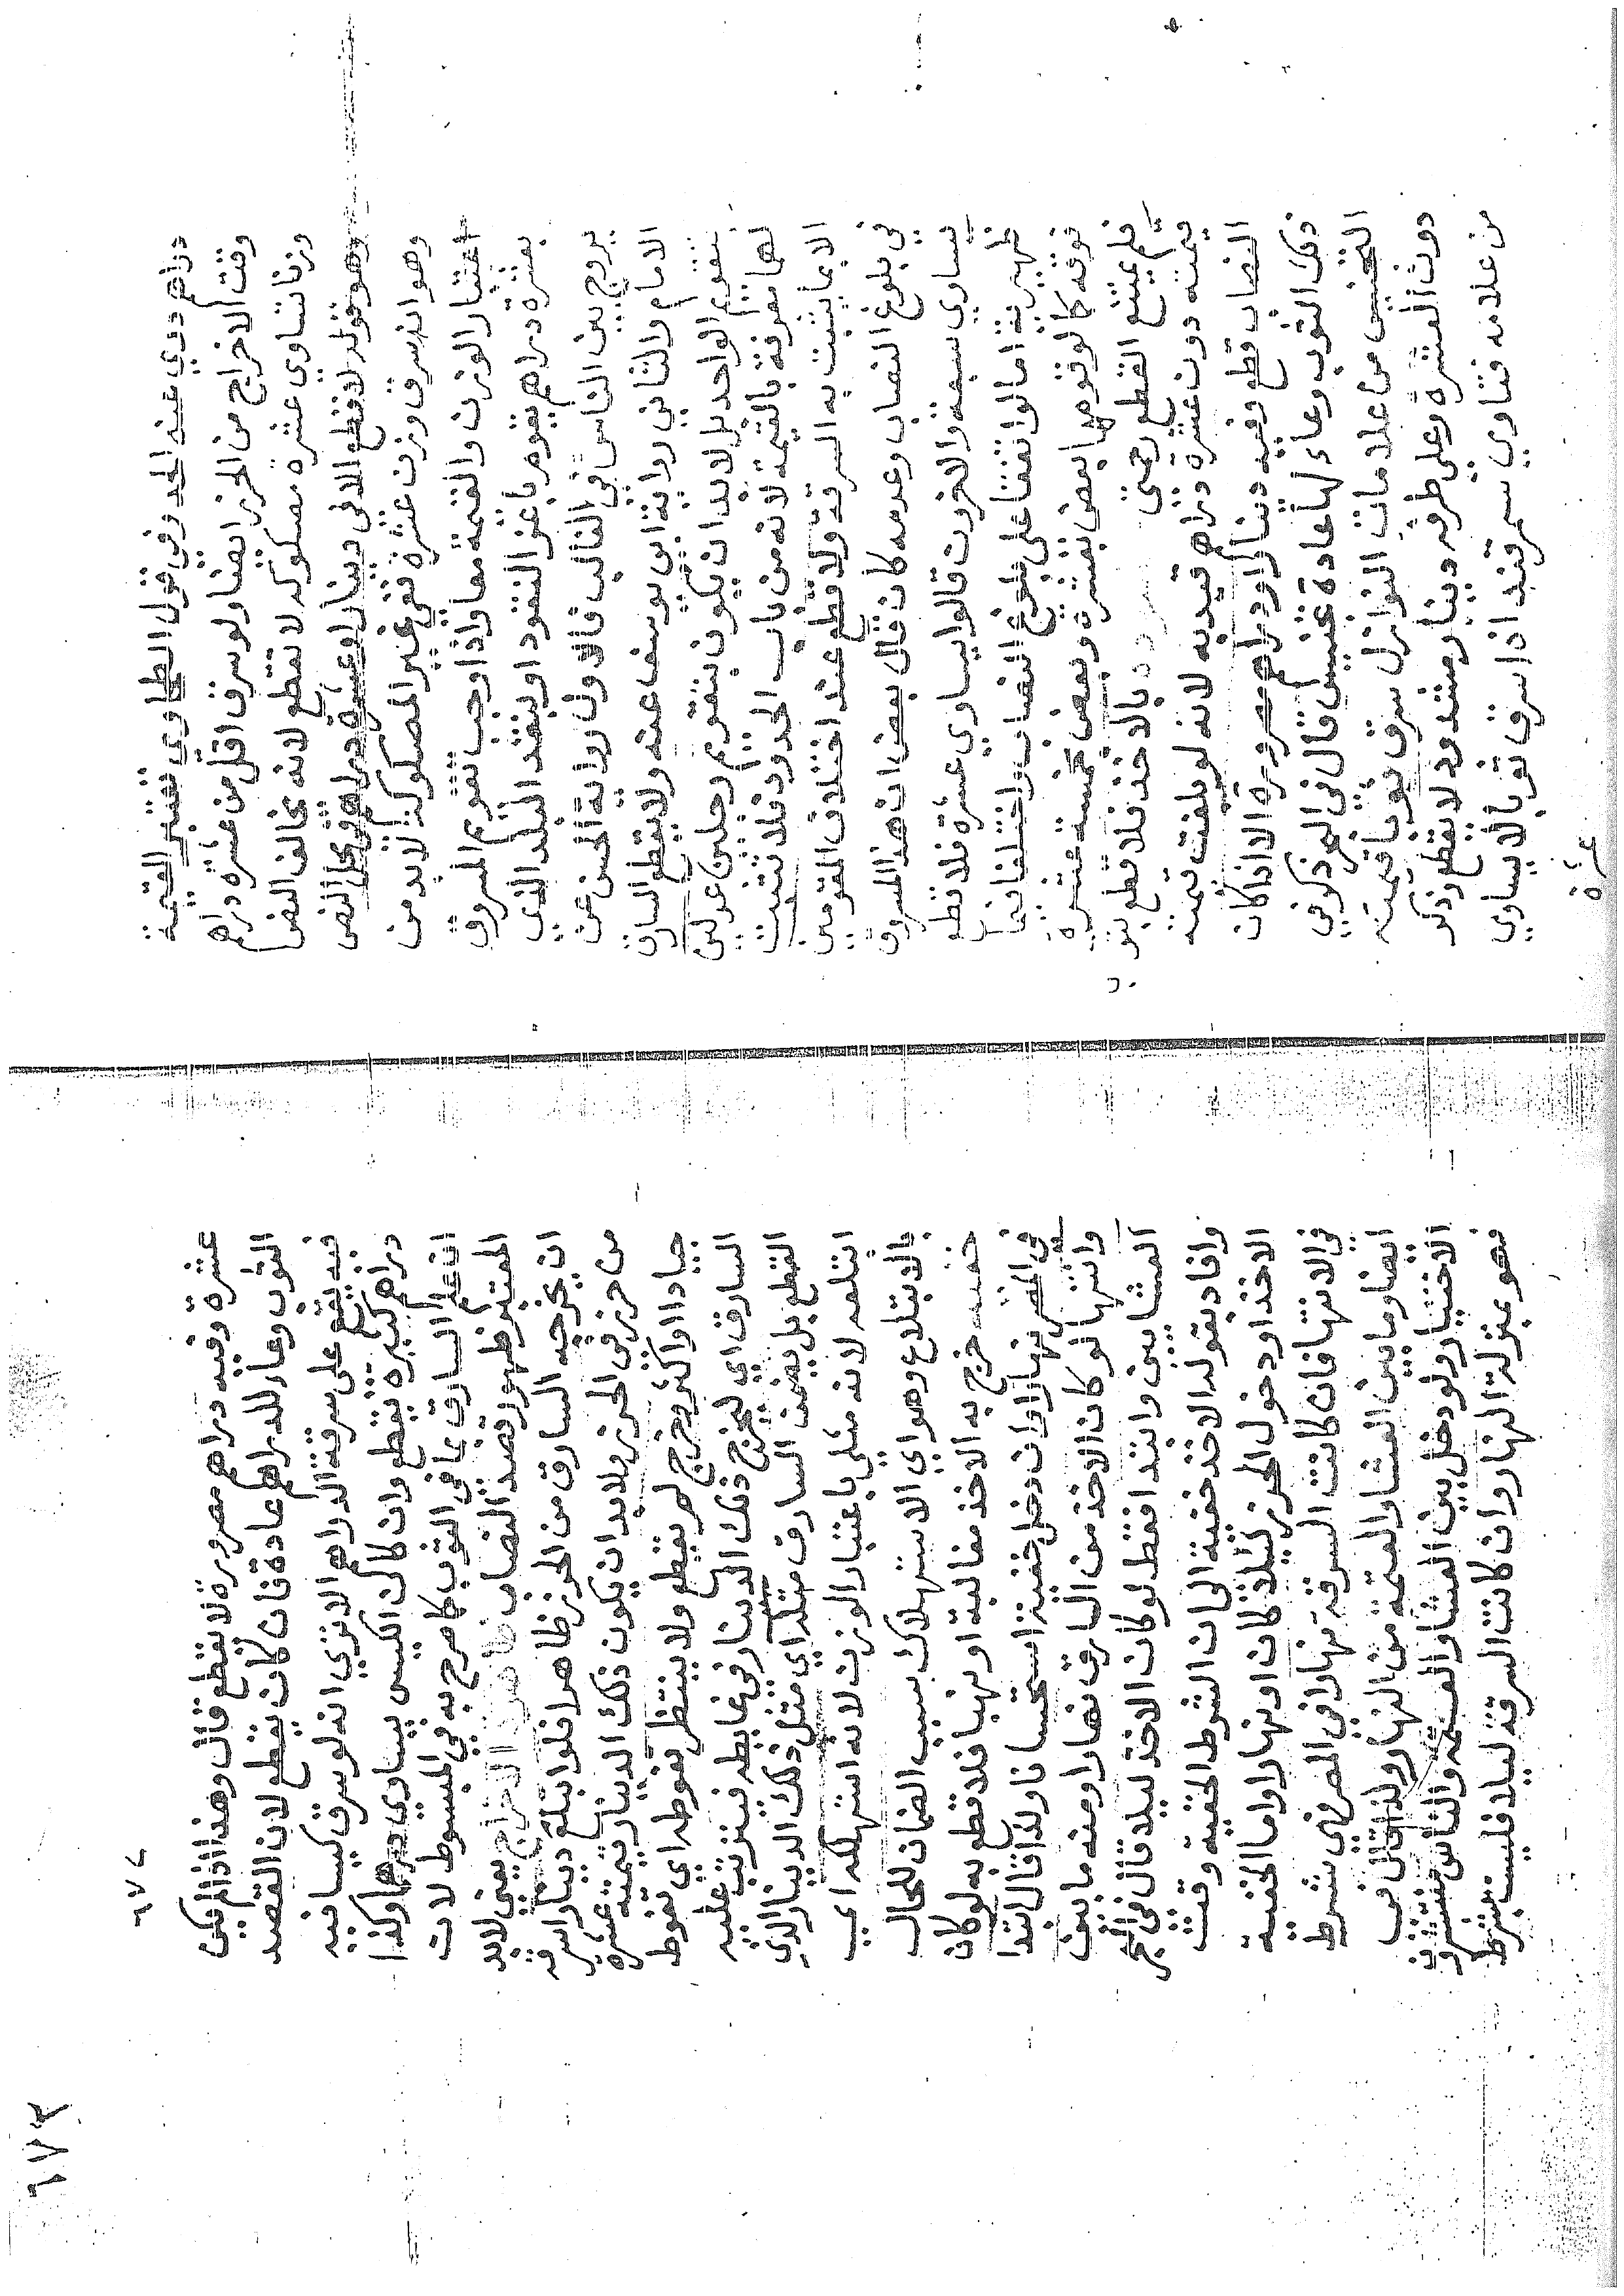 دراهم ردي عند الحد وفي قول الطحاوي تعتبر القيمة
وقت الاخراج من الحرز ايضا ولو سرق اقل من عشرة دراهم
وزنا تساوي عشرة مصكوكه لا تقطع لانه يخالف النص
وهو قوله لا قطع الا في دينار او عشرة دراهم في محل النص
وهو انه سرق وزن عشرة ففي غير المصكوكة لا بد من
اعتبار الوزن والقيمة معا واذا وجب تقويم المسروق
بعشرة دراهم يقوم باعز النقود او بنقد البلد الذي
يروج بين الناس في الغالب فالاول رواية الحسن عن
الامام والثاني رواية ابي يوسف عنه ولا يقطع السارق
بتقويم الواحد بل لا بد ان يكون بتقويم رجلين عدلين
لهما معرفة بالقيمة لانه من باب الحدود فلا تثبت
الا بما يثبت به السرقة ولا قطع عند اختلاف المقومين
في بلوغ النصاب وعدمه كان قال بعض ان هذا المسروق
يساوي سبعة والاخرون قالوا يساوي عشرة فلا تقطع
ظهيرية اما لو اتفقا على بلوغ النصاب واختلفا فيما
فوقه كما لو قومها بعض بعشرة وبعض بخمسة عشرة
فلم يمتنع القطع رحمتي بالاخذ فلا قطع بثو
قيمته دون عشرة دراهم قيد به لانه لو بلغت قيمته
النصاب قطع وفيه دينار او دراهم مصرورة الا اذا كان
ذلك الثوب وعاء لها عادة تجنيس قال في البحر ذكر في
التجنيس من علامات النوازل سرق ثوبا قيمته
دون العشرة وعلى طرفه دينار مشدود لا يقطع وذكر
من علامة فتاوي سمرقند اذا سرق ثوبا لا يساوي
عشرة
٦٧٧
عشرة وفيه دراهم مصرورة لا يقطع قال وهذا اذا لم يكن
الثوب وعاء للدراهم عادة فان كان يقطع لان القصد
فيه يقع على سرقة الدراهم الا تري انه لو سرق كيسا فيه
دراهم كثيرة يقطع وان كان الكيس يساوي درهما وكذا
ان علم السارق بما في الثوب كما صرح به في المبسوط لان
المعتبر ظهور قصد النصاب ظاهرة الاخراج يعني لا بد
ان يخرجه السارق من الحرز ظاهرا فلو ابتلع دينارا سرقه
من حرز في الحرز ولا بد ان يكون ذلك الدينار قيمته عشرة
جيادا او اكثر وخرج لم يقطع ولا ينتظر تغوطه اي تغوط
السارق اي ليخرج ذلك الدينار في غايطه فيترتب عليه
القطع بل يضمن السارق مثله اي مثل ذلك الدينار الذي
ابتلعه لانه مثلي باعتبار الوزن لانه استهلكه اي
بالابتلاع وهو اي الاستهلاك سبب الضمان للحال
خفيه خرج به الاخذ مغالبة او نهبا فلا قطع به لو كان
في المصر نهارا وان دخل خفية استحسانا ولذا قال ابتدا
وانتها لو كان الاخذ من السارق نهارا ومنه ما بين
العشايين وابتدا فقط لو كان الاخذ ليلا قال في البحر
وافاد بقوله الاخذ خفية الى ان الشرط الخفية وقت
الاخذ او دخول الحرز ليلا كان او نهارا واما الخفية
في الانتها فان كانت السرقة نهارا في المصر فهي شرط
ايضا وما بين العشا والعتمة من النهار ولذا قال في
الاختيار ولو دخل بين العشا والعتمه والناس منتشرون
فهو بمنزلة النهار وان كانت السرقة ليلا فليست بشرط
٦٧٤